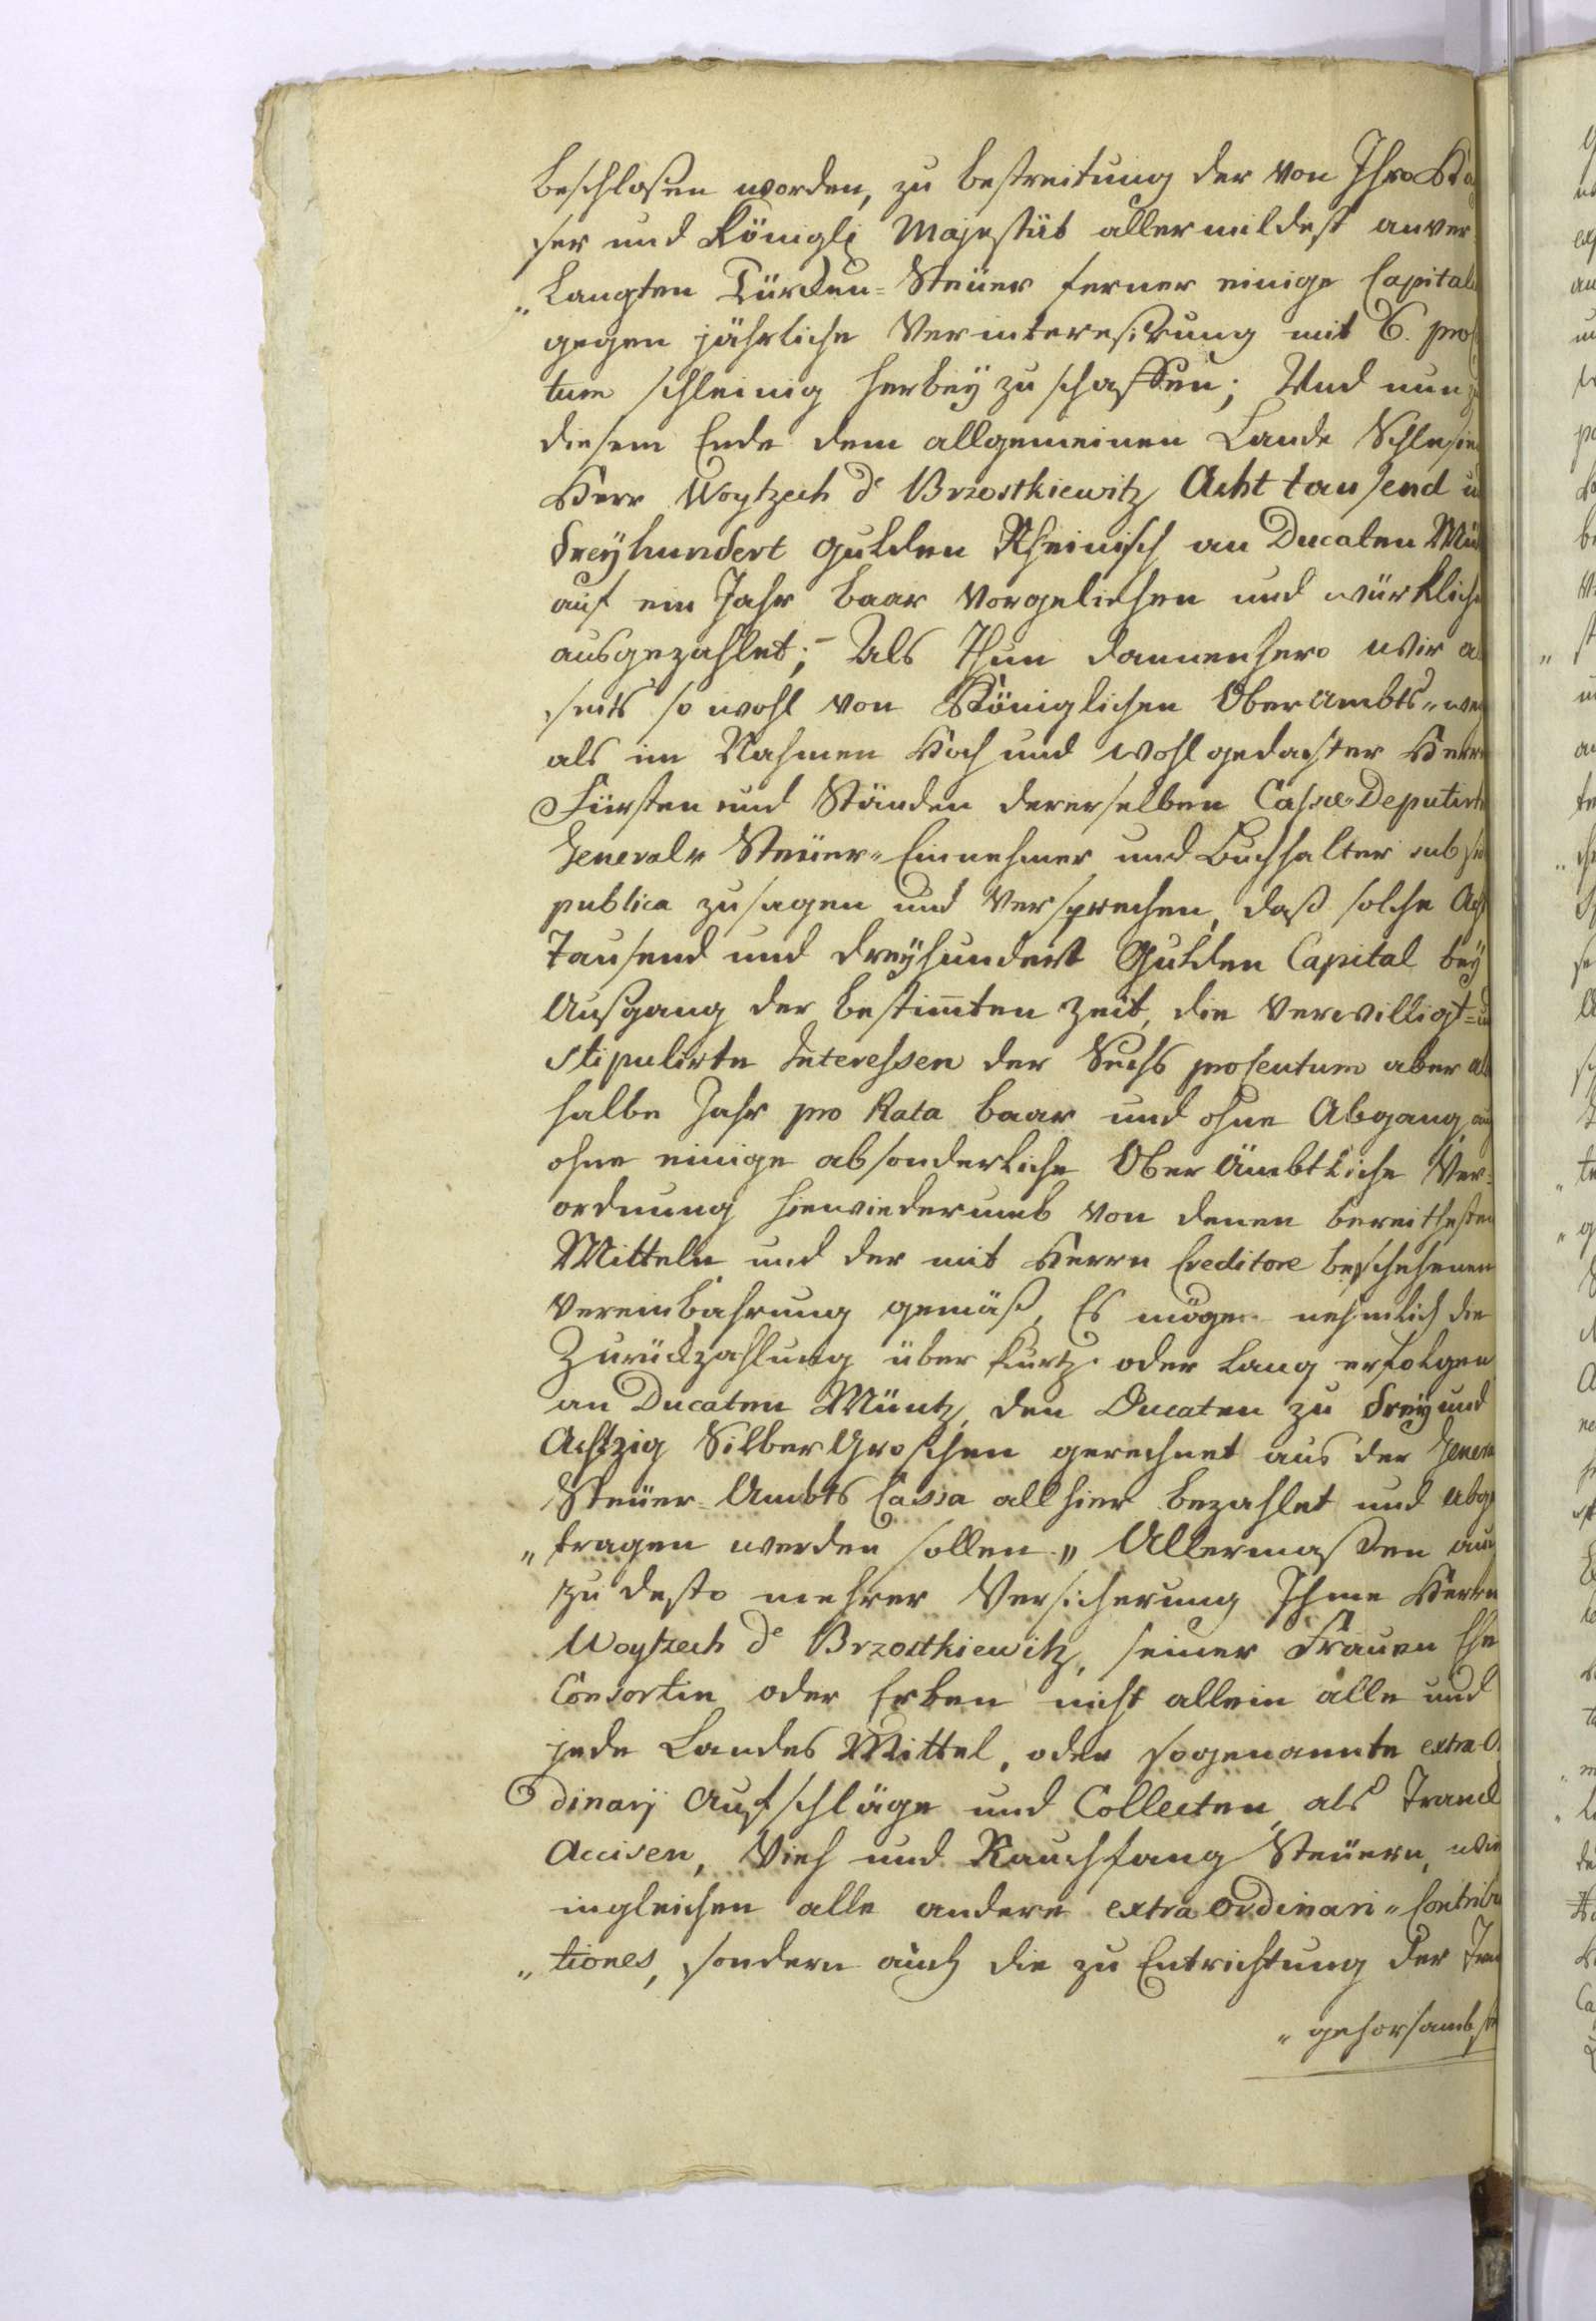 beschloßen worden, zu bestreitung der von Ihro Kä
ser und Königl: Majestät allermildest anver
„langten Türcken=Steüer ferner einige Capital
gegen jährliche Verinteressirung mit 6. pro
tum schleinig herbeÿ zu schaffen; Und nun
diesem Ende dem allgemeinen Lande Schlesie
Herr Woytzech de Brzostkiewitz Acht tausend u
dreÿhundert gulden Rheinisch an Ducaten Mü
auf ein Jahr baar vorgeliehen und würklich
ausgezahlet;- Als Thun dannenhero wir a
seits so wohl von Königlichen Ober Ambts„ we
als im Nahmen Hoch und wohl gedachter Herr
Fürsten und Ständen dererselben Cassæ Deputirt
General„ Steüer„ Einnehmer und Buchhalter sub
publica zusagen und Versprechen, daß solche Ach
Tausend und dreÿhundert Gulden Capital beÿ
Außgang der bestim̄ten Zeit, die verwilligt=u
stipulirte Interessen der Sechs procentum aber al
halbe Jahr pro Rata baar und ohne Abgang, au
ohne einige absonderliche Ober Ämbtliche Ver=
ordnung hinwiederumb von denen bereithesten
Mitteln und der mit Herrn Creditore beschehenen
Vereinbahrung gemäß, Es möge nehmlich die
Zurückzahlung über kurtz oder lang erfolgen
an Ducaten Müntz, den Ducaten zu dreÿ und
Achtzig Silber Groschen gerechnet aus der Genera
Steüer=Ambts Cassa allhier bezahlet und abge
„tragen werden sollen„ Allermaßen auc
zu desto mehrer Versicherung Ihme Herrn
Woytzech de Brzostkiewitz, seiner Frauen Ehe
Consortin oder Erben nicht allein alle und
jede Landes Mittel, oder sogenannte extra O
dinarj Aufschläge und Collecten, als Tranck
Accisen, Vieh und Rauchfang Steüern, wie
ingleichen alle andere extra Ordinari„ Contribu
„tiones, sondern auch die zu Entrichtung der
„gehorsambst